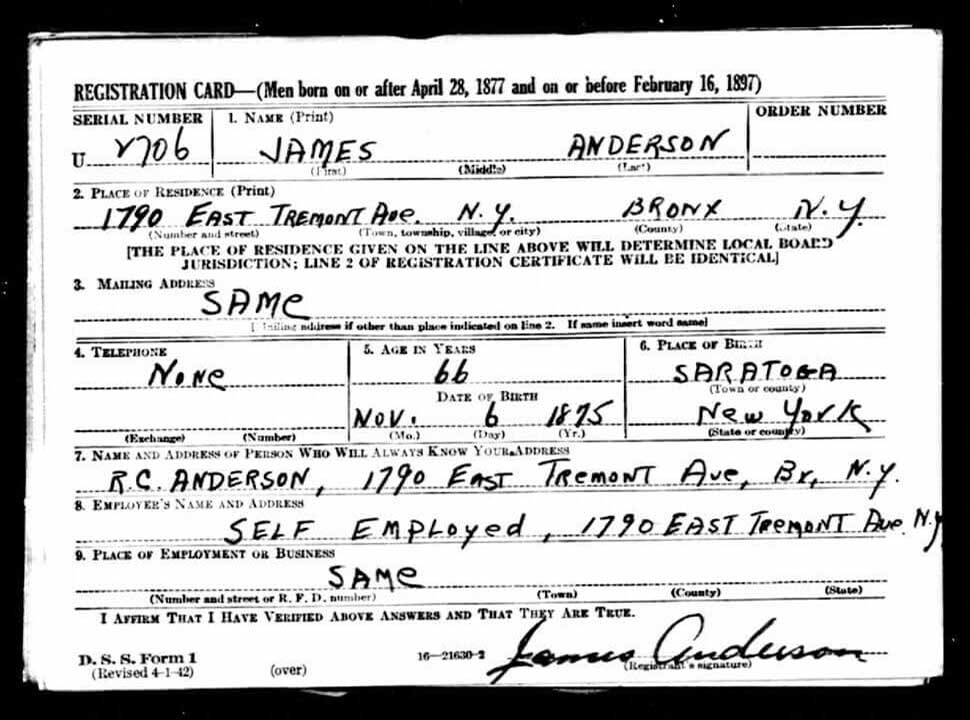 REGISTRATION CARD—(Men born on or after April 28, 1877 and on or before February 16, 1897)
SERIAL NUMBER 1. NAME (Print) ORDER NUMBER
U 2706 JAMES ANDERSON
(First) (Middle) (Last)
2. PLACE OF RESIDENCE (Print)
1790 EAST TREMONT AVE. N.Y. BRONX N.Y.
(Number and street) (Town, township, village, or city) (County) (State)
[THE PLACE OF RESIDENCE GIVEN ON THE LINE ABOVE WILL DETERMINE LOCAL BOARD
JURISDICTION; LINE 2 OF REGISTRATION CERTIFICATE WILL BE IDENTICAL]
3. MAILING ADDRESS
SAME
[Mailing address if other than place indicated on line 2. If same insert word same]
4. TELEPHONE 5. AGE IN YEARS 6. PLACE OF BIRTH
NONE 66 SARATOGA
DATE OF BIRTH (Town or county)
NOV. 6 1875 NEW YORK
(Exchange) (Number) (Mo.) (Day) (Yr.) (State or country)
7. NAME AND ADDRESS OF PERSON WHO WILL ALWAYS KNOW YOUR ADDRESS
R.C. ANDERSON, 1790 EAST TREMONT AVE, BX, N.Y.
8. EMPLOYER'S NAME AND ADDRESS
SELF EMPLOYED, 1790 EAST TREMONT AVE. N.Y.
9. PLACE OF EMPLOYMENT OR BUSINESS
SAME
(Number and street or R. F. D. number) (Town) (County) (State)
I AFFIRM THAT I HAVE VERIFIED ABOVE ANSWERS AND THAT THEY ARE TRUE.
D. S. S. Form 1 16—21630-2 James Anderson
(Revised 4-1-42) (over) (Registrant's signature)